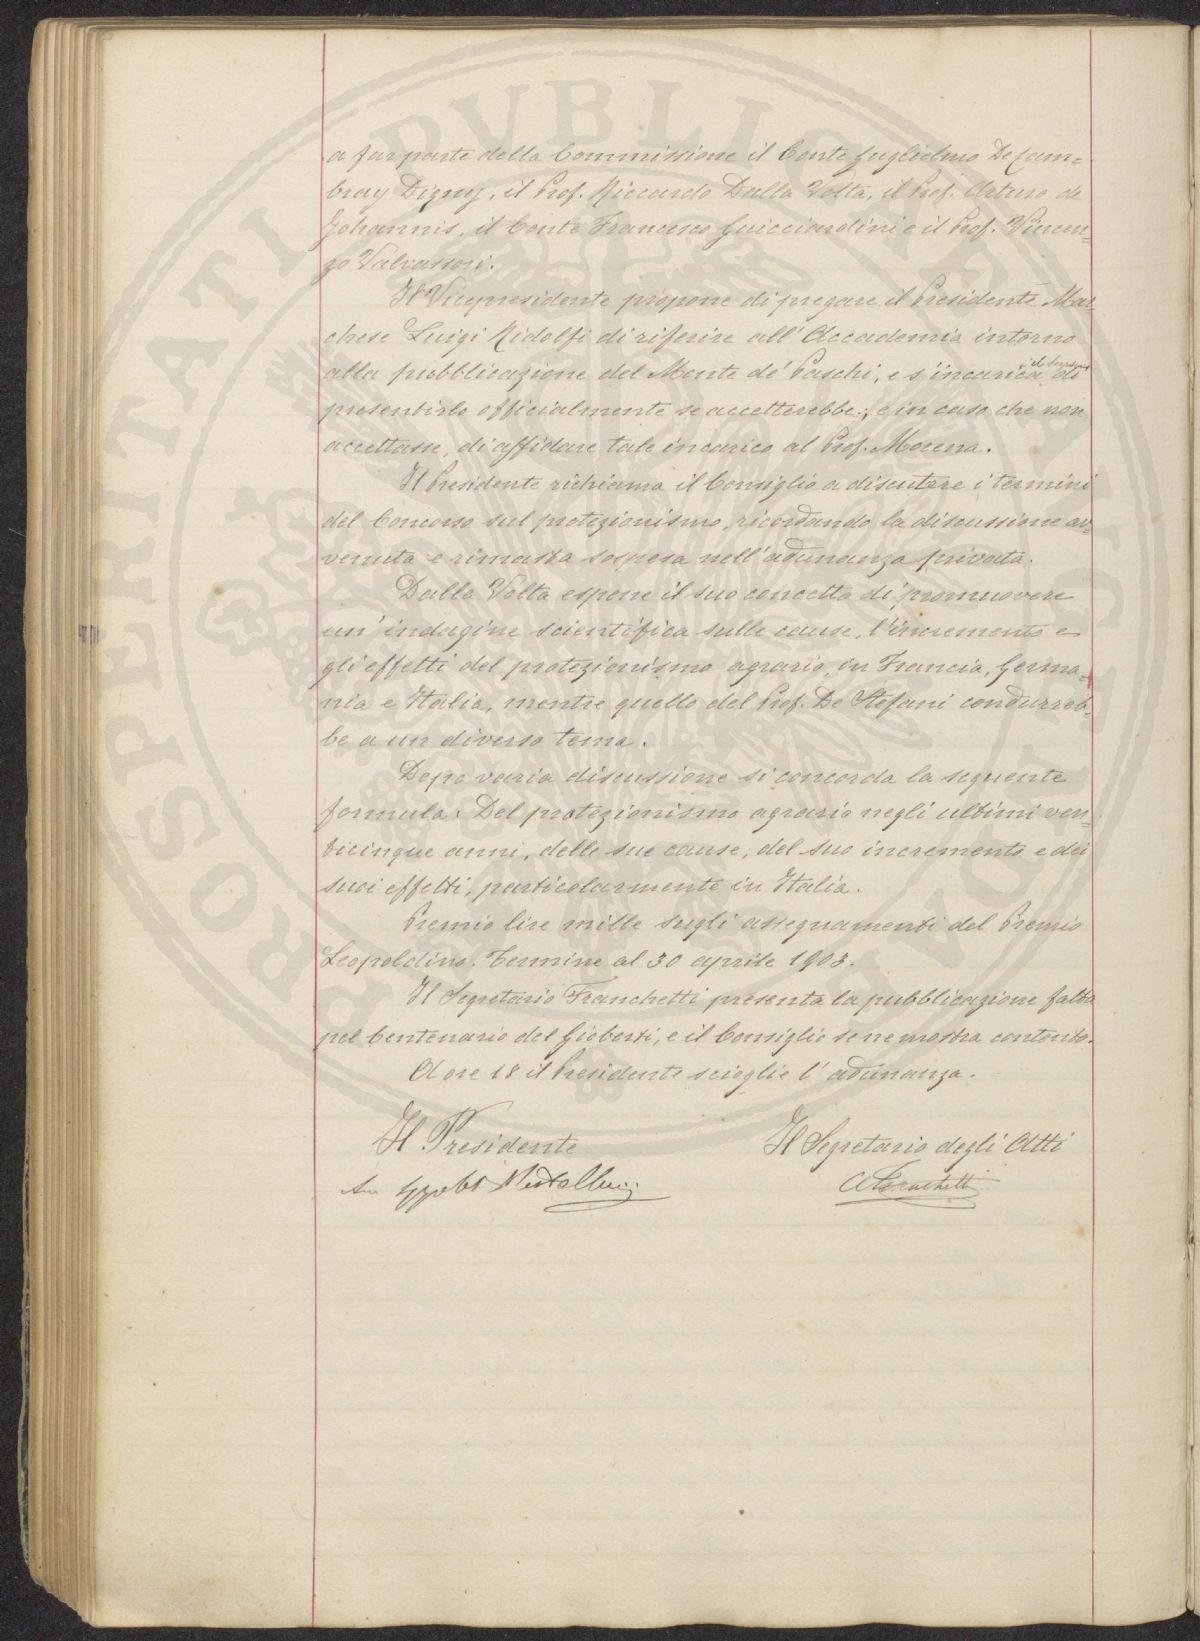 PROSPERITATI PVBLICAE AVGENDAE
a far parte della Commissione il Conte Guglielmo De Cam=
bray Digny, il Prof. Riccardo Dalla Volta, il Prof. Arturo de
Johannis, il Conte Francesco Guicciardini e il Prof. Vincen-
zo Valvassori.
Il Vicepresidente propone di pregare il Presidente Mar-
chese Luigi Ridolfi di riferire all'Accademia intorno
alla pubblicazione del Monte de' Paschi, e s'incarica di
presentirlo officialmente se accetterebbe; e in caso che non
accettasse, di affidare tale incarico al Prof. Morena.
Il Presidente richiama il Consiglio a discutere i termini
del Concorso sul protezionismo, ricordando la discussione av-
venuta e rimasta sospesa nell'adunanza privata.
Dalla Volta espone il suo concetto di promuovere
un'indagine scientifica sulle cause, l'incremento e
gli effetti del protezionismo agrario, in Francia, Germa-
nia e Italia, mentre quello del Prof. De Stefani condurreb-
be a un diverso tema.
Dopo varia discussione si concorda la seguente
formula: Del protezionismo agrario negli ultimi ven-
ticinque anni, delle sue cause, del suo incremento e dei
suoi effetti, particolarmente in Italia.
Premio lire mille sugli assegnamenti del Premio
Leopoldino. Termine al 30 aprile 1903.
Il Segretario Franchetti presenta la pubblicazione fatta
pel Centenario del Gioberti, e il Consiglio se ne mostra contento.
A ore 18 il Presidente scioglie l'adunanza.
Il Presidente
Il Segretario degli Atti
A Franchetti